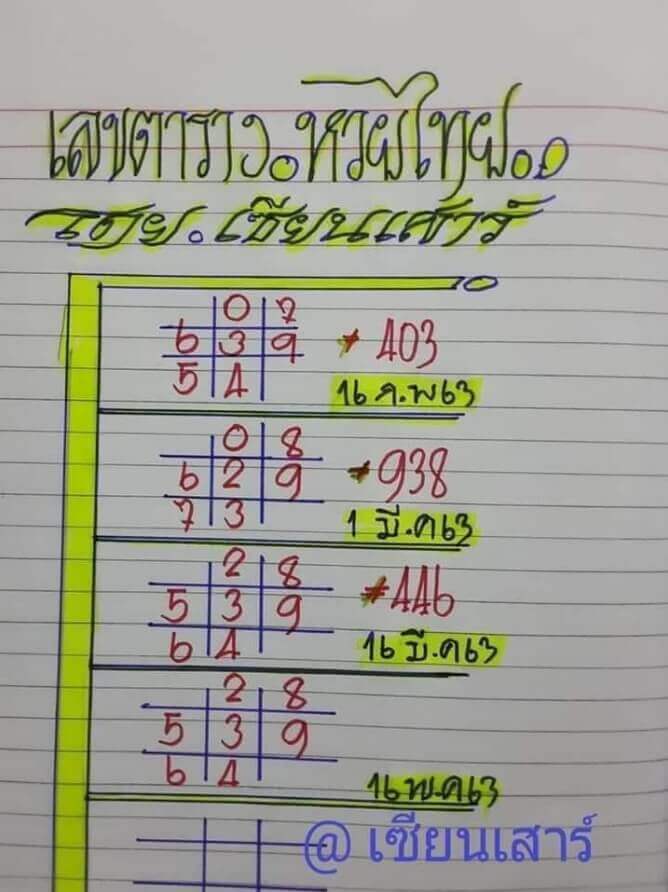 เลขตาราง.หวยไทย..
โดย.เซียนเสาร์
0 7
6 3 9 403
5 4
16 ก.พ 63
0 8
6 2 9 938
7 3
1 มี.ค 63
2 8
5 3 9 446
6 4
16 มี.ค 63
2 8
5 3 9
6 4
16 พ.ค 63
@ เซียนเสาร์